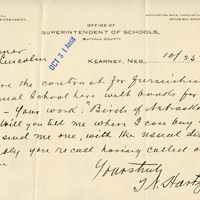 OFFICE OF
SUPERINTENDENT OF SCHOOLS,
BUFFALO COUNTY.
KEARNEY, NEB., 10/25
OCT 31
Lincoln
the contract for furnishing
School here with bonds for
- Your work. "Birds of Nebraska
Will you tell me where I can buy
send me one, with the usual dis
you recall having called
Yours truly